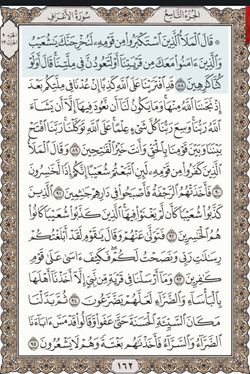 الجزء التاسع
سورة الأعراف
۞ قال الملأ الذين استكبروا من قومه لنخرجنك يشعيب
والذين ءامنوا معك من قريتنا أو لتعودن في ملتنا قال أولو
كنا كرهين ٨٨ قد افترينا على الله كذبا إن عدنا في ملتكم بعد
إذ نجىنا الله منها وما يكون لنا أن نعود فيها إلا أن يشاء
الله ربنا وسع ربنا كل شيء علما على الله توكلنا ربنا افتح
بيننا وبين قومنا بالحق وأنت خير الفتحين ٨٩ وقال الملأ
الذين كفروا من قومه لئن اتبعتم شعيبا إنكم إذا لخسرون
٩٠ فأخذتهم الرجفة فأصبحوا في دارهم جثمين ٩١ الذين
كذبوا شعيبا كأن لم يغنوا فيها الذين كذبوا شعيبا كانوا
هم الخسرين ٩٢ فتولى عنهم وقال يقوم لقد أبلغتكم
رسلت ربي ونصحت لكم فكيف ءاسى على قوم
كفرين ٩٣ وما أرسلنا في قرية من نبي إلا أخذنا أهلها
بالبأساء والضراء لعلهم يضرعون ٩٤ ثم بدلنا
مكان السيئة الحسنة حتى عفوا وقالوا قد مس ءاباءنا
الضراء والسراء فأخذنهم بغتة وهم لا يشعرون ٩٥
١٦٢